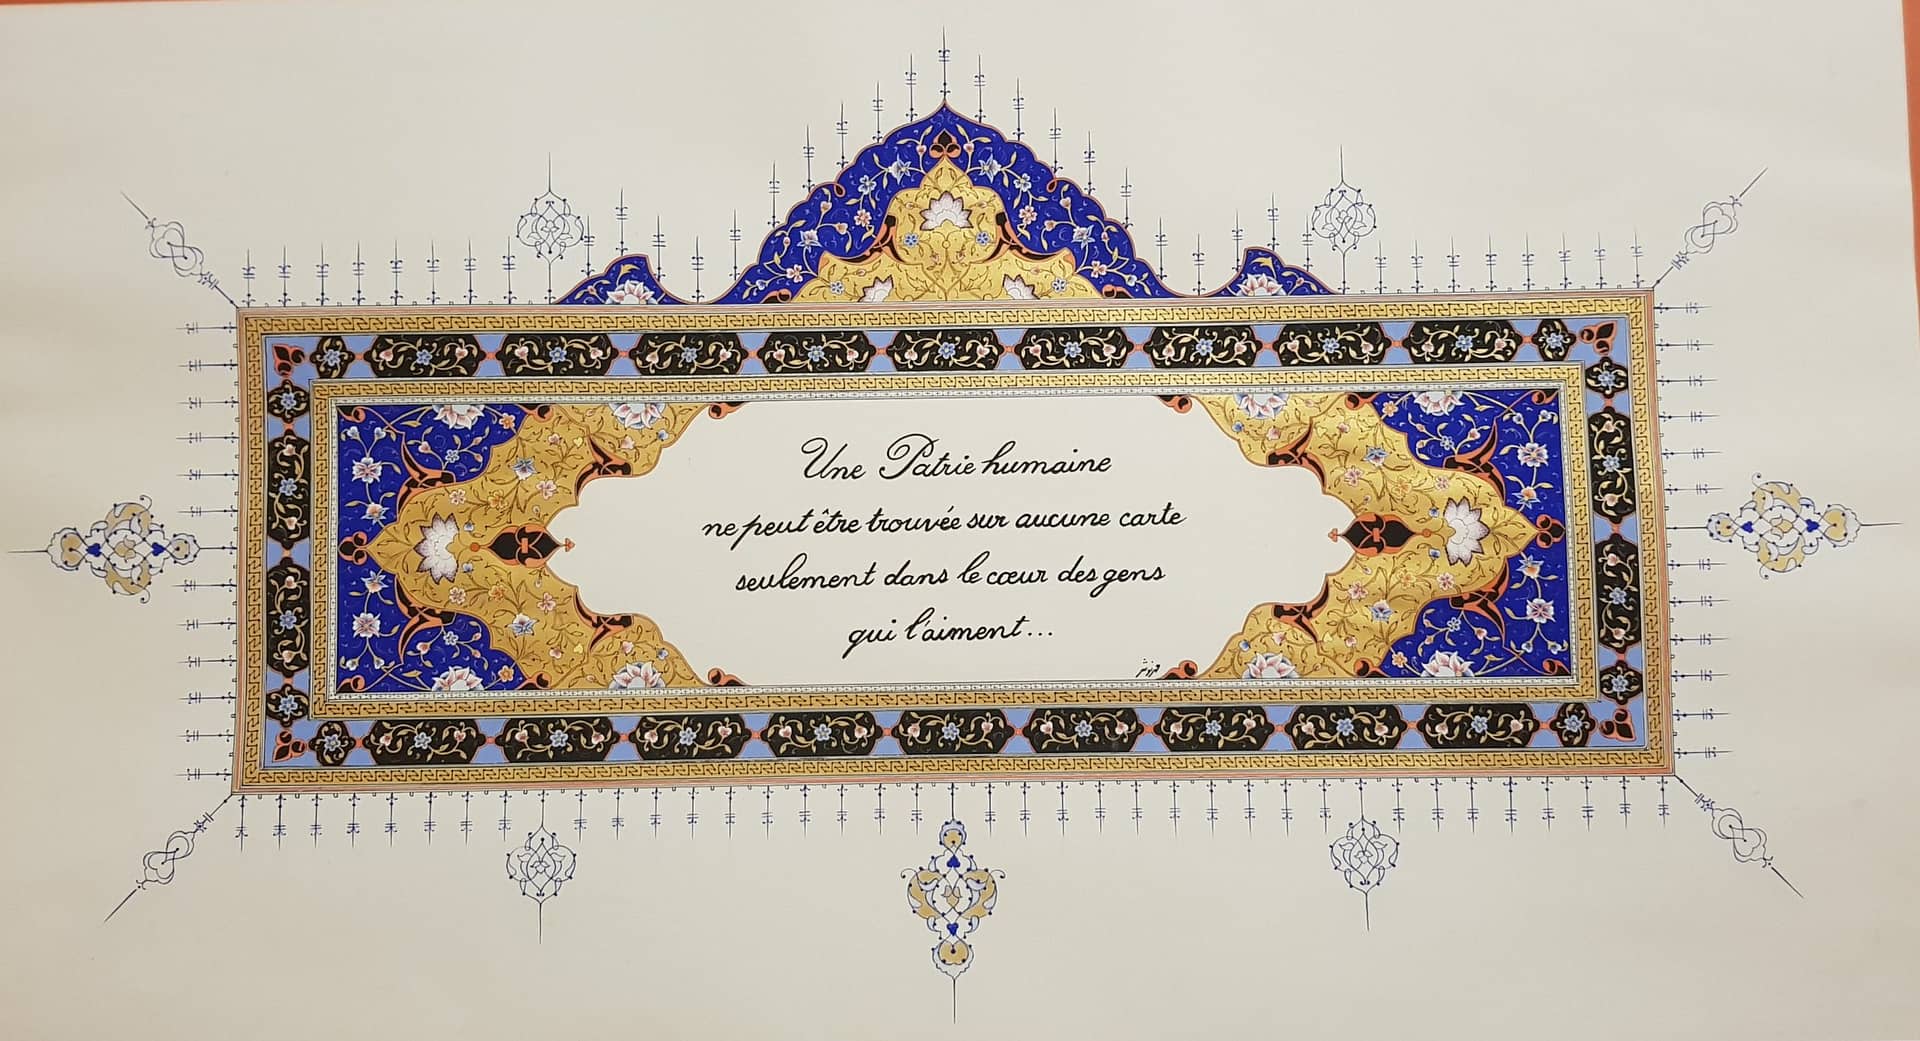 Une Patrie humaine
ne peut être trouvée sur aucune carte
seulement dans le cœur des gens
qui l'aiment...